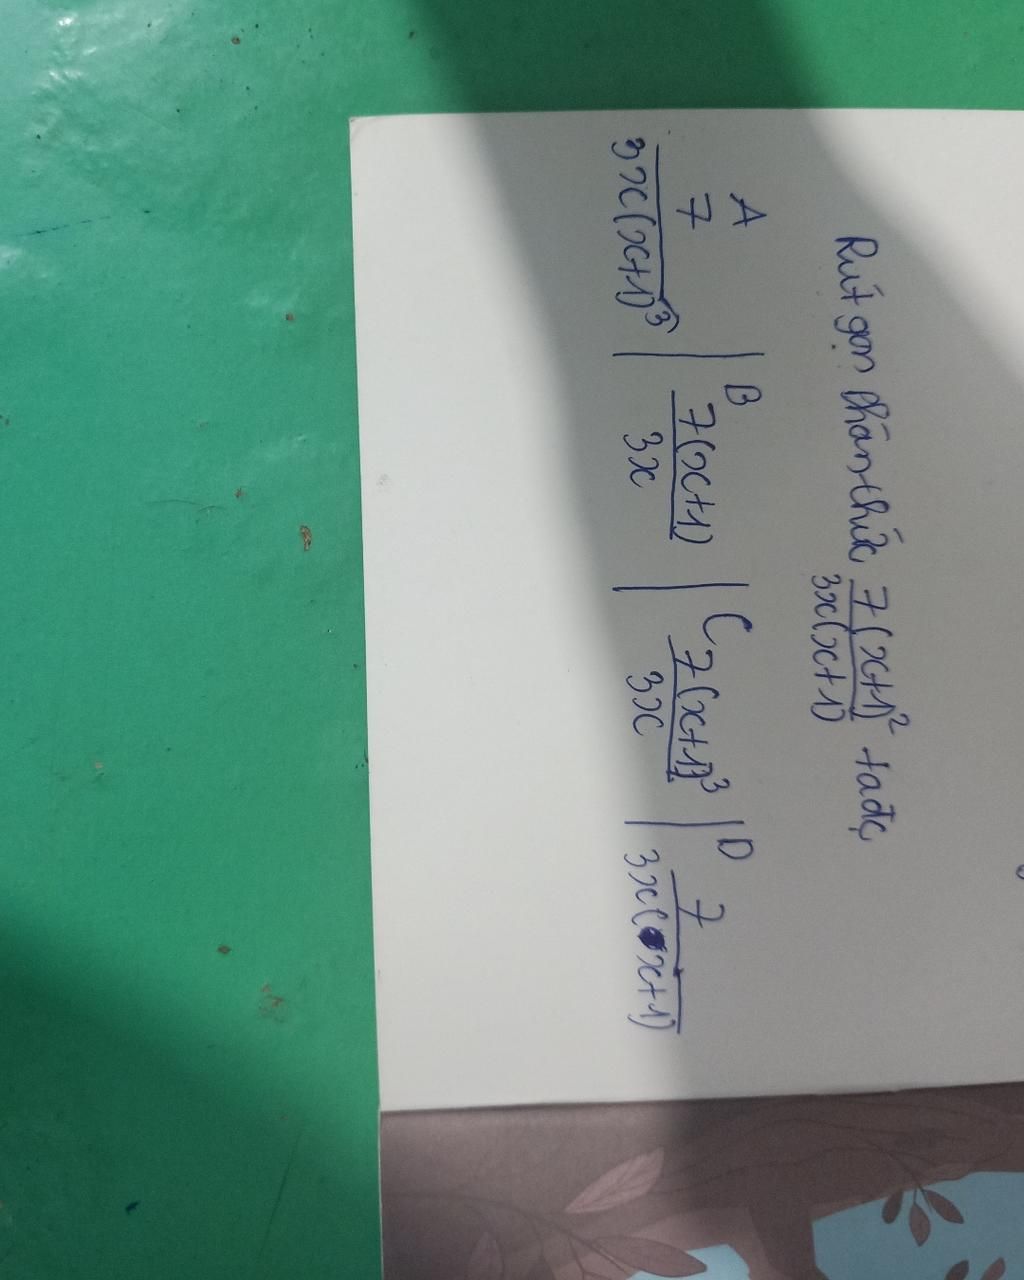 Rút gọn phân thức 7(x+1)² / 3x(x+1) ta đc
A 7 / 3x(x+1)³ | B 7(x+1) / 3x | C 7(x+1)³ / 3x | D 7 / 3x(x+1)